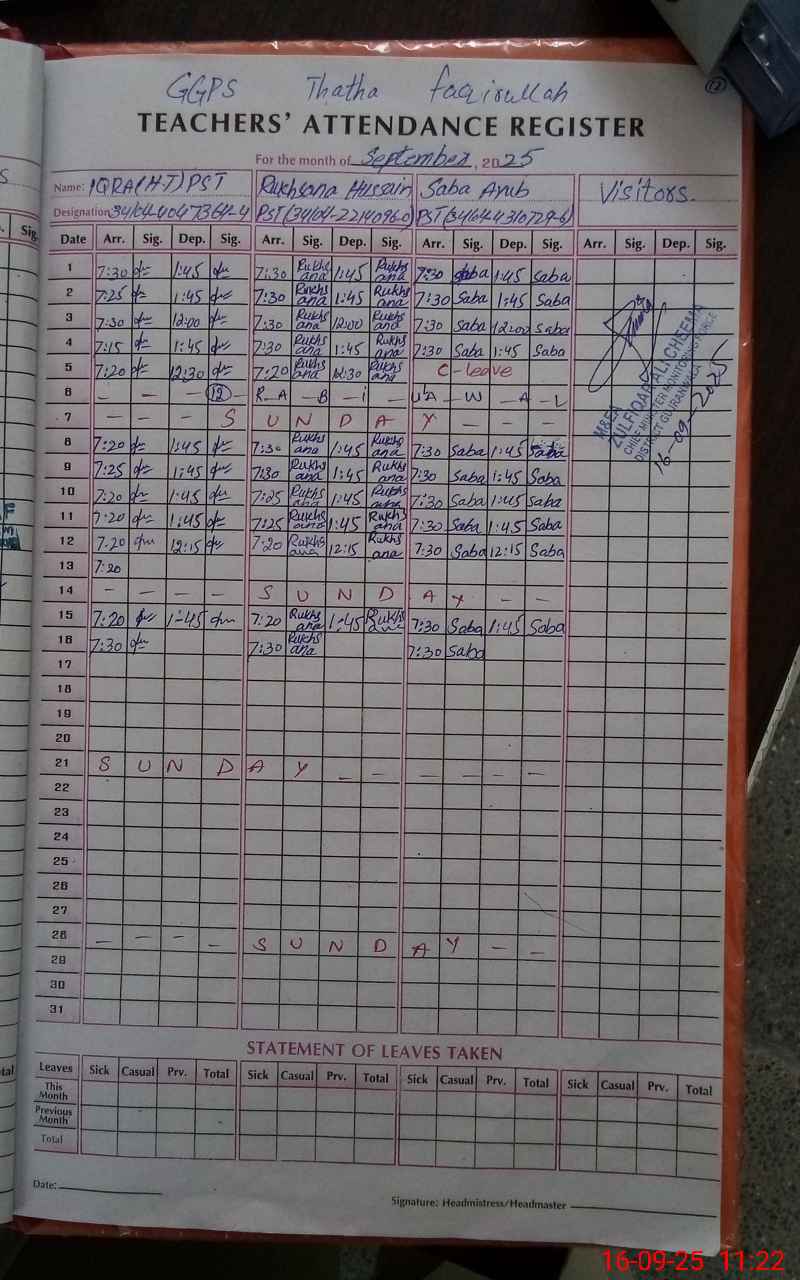 GGPS Thatha Faqirullah
TEACHERS' ATTENDANCE REGISTER
For the month of September, 2025
Name: IQRA(H-T) PST Rukhsana Hussain Saba Ayub Visitors.
Designation 34104-4047364-4 PST(34104-2214096-0) PST(34164-4310729-6)
Date Arr. Sig. Dep. Sig. Arr. Sig. Dep. Sig. Arr. Sig. Dep. Sig. Arr. Sig. Dep. Sig.
1 7:30 1:45 7:30 Rukhsana 1:45 Rukhsana 7:30 Saba 1:45 Saba
2 7:25 1:45 7:30 Rukhsana 1:45 Rukhsana 7:30 Saba 1:45 Saba
3 7:30 12:00 7:30 Rukhsana 12:00 Rukhsana 7:30 Saba 12:00 Saba
4 7:15 1:45 7:30 Rukhsana 1:45 Rukhsana 7:30 Saba 1:45 Saba
5 7:20 12:30 7:20 Rukhsana 12:30 Rukhsana C-leave
6 - - - 12 - R - A - B - i - U'A - W - A - L
7 - - - S U N D A Y - - -
8 7:20 1:45 7:30 Rukhsana 1:45 Rukhsana 7:30 Saba 1:45 Saba
9 7:25 1:45 7:30 Rukhsana 1:45 Rukhsana 7:30 Saba 1:45 Saba
10 7:20 1:45 7:25 Rukhsana 1:45 Rukhsana 7:30 Saba 1:45 Saba
11 7:20 1:45 7:25 Rukhsana 1:45 Rukhsana 7:30 Saba 1:45 Saba
12 7.20 12:15 7:20 Rukhsana 12:15 Rukhsana 7:30 Saba 12:15 Saba
13 7:20
14 - - - - S U N D A Y - -
15 7:20 1:45 7:20 Rukhsana 1:45 Rukhsana 7:30 Saba 1:45 Saba
16 7:30 7:30 Rukhsana 7:30 Saba
17
18
19
20
21 S U N D A Y - - - - - -
22
23
24
25
26
27
28 - - - - S U N D A Y - -
29
30
31
M&EA
ZULFIQAR ALI CHEEMA
CHIEF MINISTER MONITORING FORCE
DISTRICT GUJRANWALA
16-09-2025
STATEMENT OF LEAVES TAKEN
Leaves Sick Casual Prv. Total Sick Casual Prv. Total Sick Casual Prv. Total Sick Casual Prv. Total
This Month
Previous Month
Total
Date:
Signature: Headmistress/Headmaster
16-09-25 11:22